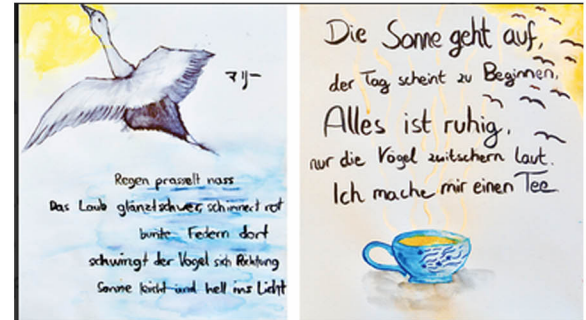 マリー
Regen prasselt nass
Das Laub glänzt schwer, schimmert rot
bunte Federn dort
schwingt der Vogel sich Richtung
Sonne leicht und hell ins Licht
Die Sonne geht auf,
der Tag scheint zu Beginnen,
Alles ist ruhig,
nur die Vögel zwitschern laut.
Ich mache mir einen Tee